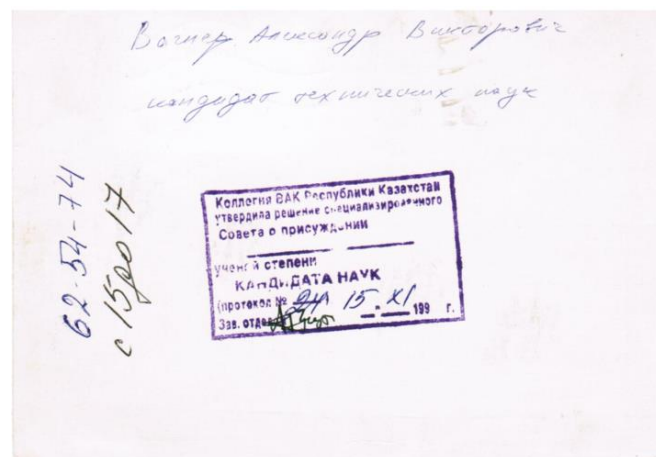 Вагнер Александр Викторович
кандидат технических наук
62-54-74
с 15 до 17
Коллегия ВАК Республики Казахстан
утвердила решение специализированного
Совета о присуждении
ученой степени
КАНДИДАТА НАУК
(протокол № 24 15. XI 199 г.
Зав. отдел